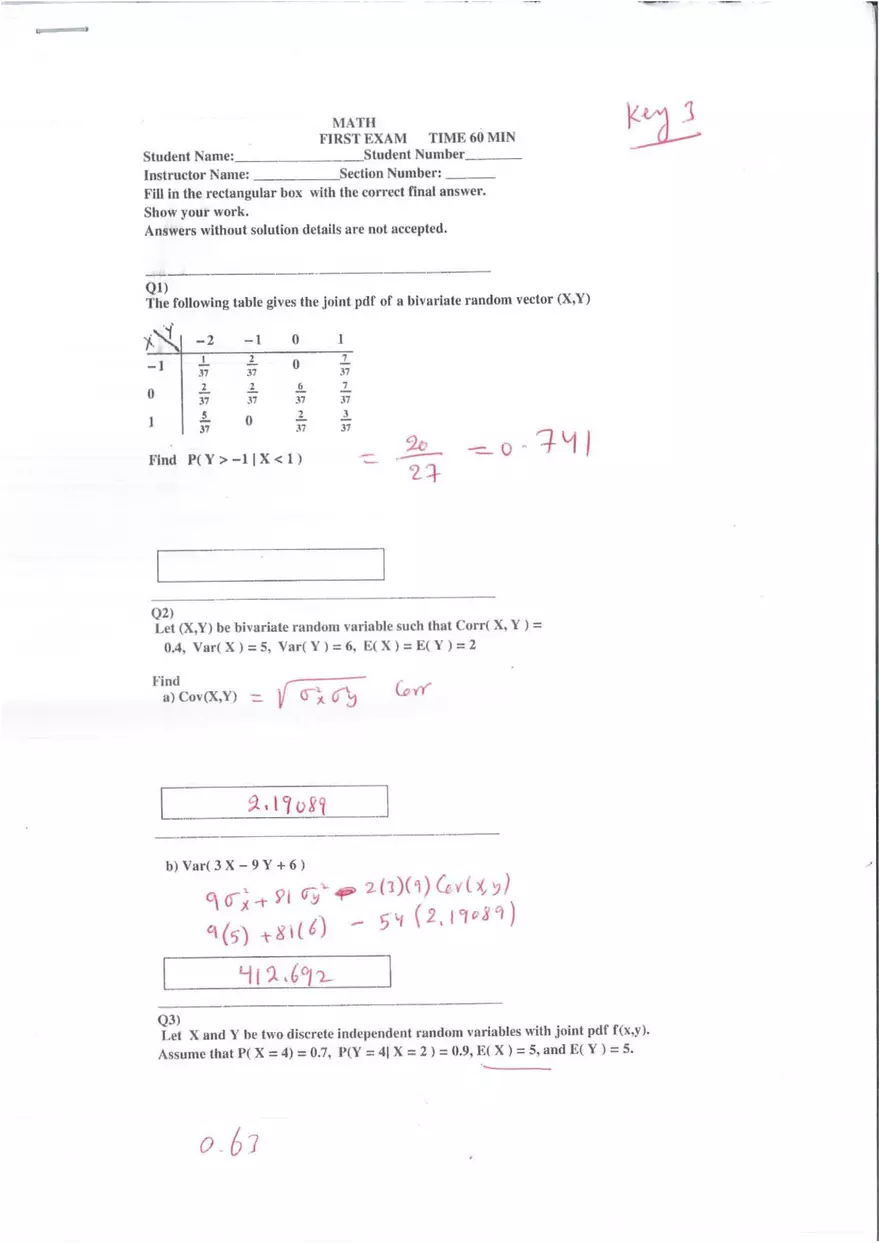 Key 3
MATH
FIRST EXAM TIME 60 MIN
Student Name:__________________Student Number________
Instructor Name: ____________Section Number: _______
Fill in the rectangular box with the correct final answer.
Show your work.
Answers without solution details are not accepted.
Q1)
The following table gives the joint pdf of a bivariate random vector (X,Y)
X Y −2 −1 0 1
−1 1/37 2/37 0 7/37
0 2/37 2/37 6/37 7/37
1 5/37 0 2/37 3/37
Find P( Y > −1 | X < 1 ) = 20/27 = 0.741
Q2)
Let (X,Y) be bivariate random variable such that Corr( X, Y ) =
0.4, Var( X ) = 5, Var( Y ) = 6, E( X ) = E( Y ) = 2
Find
a) Cov(X,Y) = √σ²x σ²y Corr
2.19089
b) Var( 3 X − 9 Y + 6 )
9σ²x + 81 σy² − 2(3)(9) Cov(x,y)
9(5) + 81(6) − 54 (2.19089)
412.692
Q3)
Let X and Y be two discrete independent random variables with joint pdf f(x,y).
Assume that P( X = 4) = 0.7, P(Y = 4| X = 2 ) = 0.9, E( X ) = 5, and E( Y ) = 5.
0.63